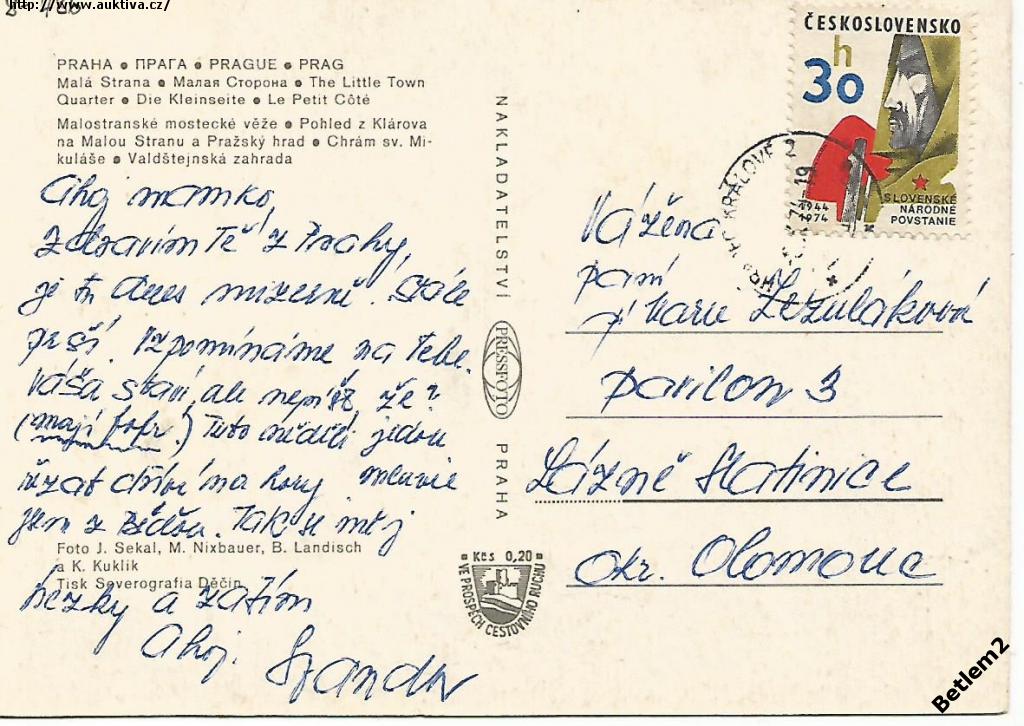 http://www.auktiva.cz/
PRAHA • ПРАГА • PRAGUE • PRAG
Malá Strana • Малая Сторона • The Little Town
Quarter • Die Kleinseite • Le Petit Côté
Malostranské mostecké věže • Pohled z Klárova
na Malou Stranu a Pražský hrad • Chrám sv. Mi-
kuláše • Valdštejnská zahrada
Ahoj mamko,
zdravím Tě z Prahy,
je tu dnes mizerně. Stále
prší. Vzpomínáme na Tebe.
Váša staví, ale nepíš že?
(mají fofr!) Tuto neděli jedou
na hory mluvil
jsem z Bédou. Tak se měj
Foto J. Sekal, M. Nixbauer, B. Landisch
a K. Kuklik
Tisk Severografia Děčín
hezky a zatím
Ahoj. Standa
NAKLADATELSTVÍ
PRESSFOTO
PRAHA
Kčs 0,20
VE PROSPĚCH CESTOVNÍHO RUCHU
ČESKOSLOVENSKO
30 h
SLOVENSKÉ
NÁRODNÉ
POVSTANIE
1944
1974
KRÁLOVÉ 2
Vážená
paní
Marie Ležuláková
pavilon 3
Lázně Slatinice
okr. Olomouc
Betlem2